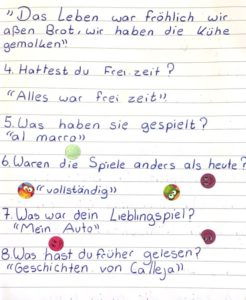 "Das Leben war fröhlich wir
aßen Brot, wir haben die Kühe
gemolken"
4. Hattest du Frei zeit?
"Alles war frei zeit"
5. Was haben sie gespielt?
"al marro"
6. Waren die Spiele anders als heute?
"vollständig"
7. Was war dein Lieblingspiel?
"Mein Auto"
8. Was hast du früher gelesen?
"Geschichten von Calleja"